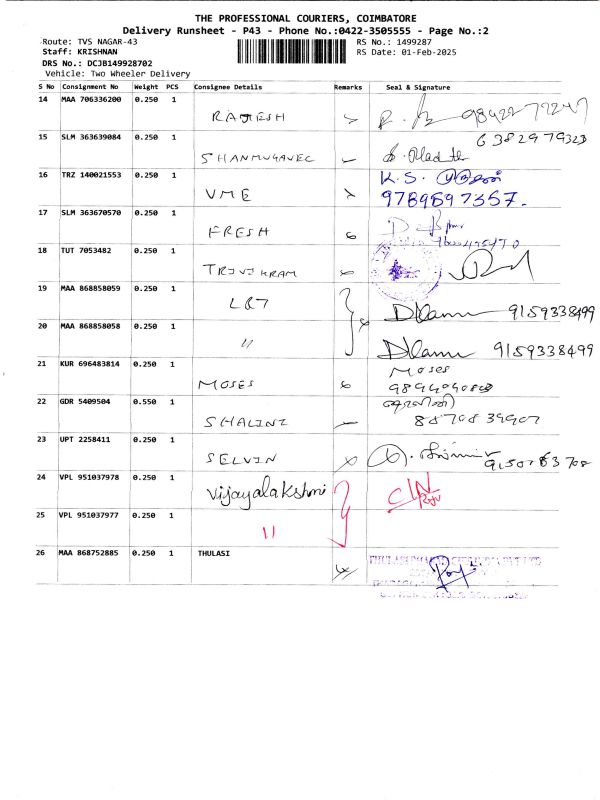 THE PROFESSIONAL COURIERS, COIMBATORE
Delivery Runsheet - P43 - Phone No.:0422-3505555 - Page No.:2
Route: TVS NAGAR-43 RS No.: 1499287
Staff: KRISHNAN RS Date: 01-Feb-2025
DRS No.: DCJB149928702
Vehicle: Two Wheeler Delivery
S No Consignment No Weight PCS Consignee Details Remarks Seal & Signature
14 MAA 706336200 0.250 1 RAJESH
15 SLM 363639084 0.250 1 SHANMUGAVEL 6382979323
16 TRZ 140021553 0.250 1 VME K.S.
9789597357.
17 SLM 363670570 0.250 1 FRESH
18 TUT 7053482 0.250 1 TRIVIKRAM
19 MAA 868858059 0.250 1 L&T 9159338499
20 MAA 868858058 0.250 1 " 9159338499
21 KUR 696483814 0.250 1 MOSES Moses
22 GDR 5409504 0.550 1 SHALINI 8870839907
23 UPT 2258411 0.250 1 SELVIN
24 VPL 951037978 0.250 1 Vijayalakshmi
25 VPL 951037977 0.250 1 "
26 MAA 868752885 0.250 1 THULASI